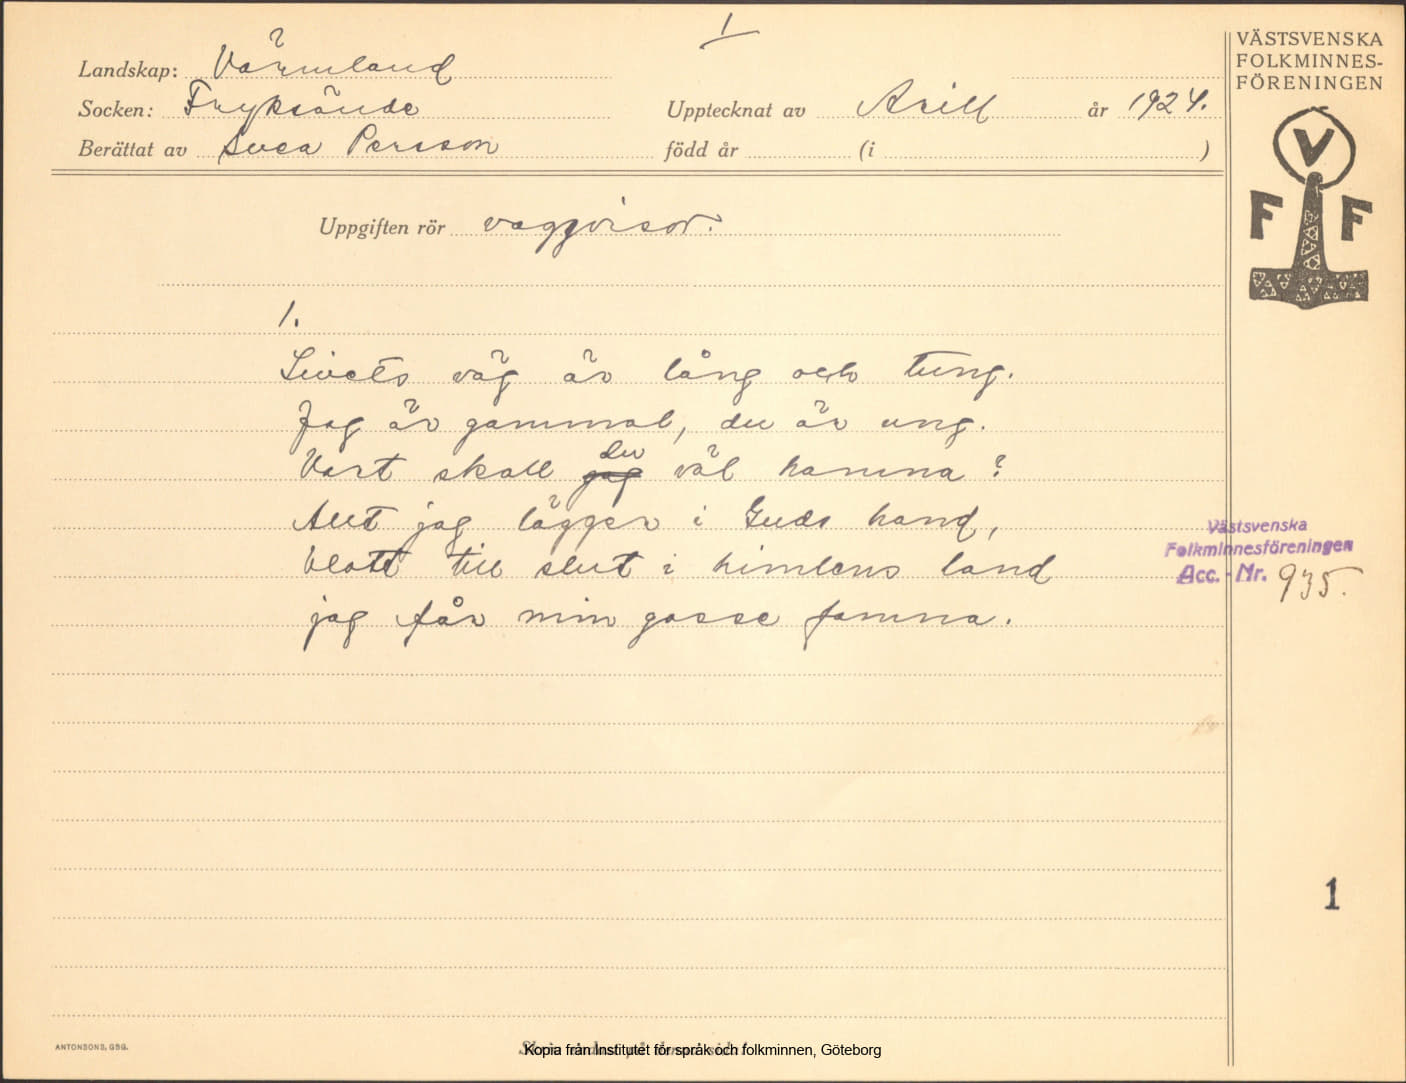 1
Landskap: Värmland
Socken: Fryksände Upptecknat av Arill år 1924.
Berättat av Svea Persson född år (i )
VÄSTSVENSKA
FOLKMINNES-
FÖRENINGEN
V
F F
Uppgiften rör vaggvisor.
1.
Livets väg är lång och tung.
Jag är gammal, du är ung.
du
Vart skall jag väl hamna?
Allt jag lägger i Guds hand,
blott till slut i himlens land
jag får min gosse famna.
Västsvenska
Folkminnesföreningen
Acc. - Nr. 935.
1
ANTONSONS, GBG.
Kopia från Institutet för språk och folkminnen, Göteborg